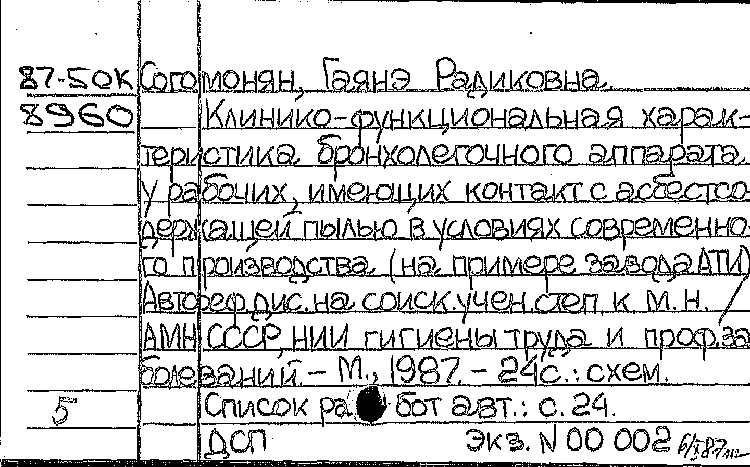 87-50К Согомонян, Гаянэ Радиковна.
8960 Клинико-функциональная харак-
теристика бронхолегочного аппарата
у рабочих, имеющих контакт с асбестсо
держащей пылью в условиях современно-
го производства (на примере завода АТИ)
Автореф.дис.на соиск.учен.степ. к.м.н.
АМН СССР, НИИ гигиены труда и проф.за
болеваний. - М., 1987. - 24с.: схем.
5 Список работ авт.: с.24.
ДСП экз. N 00 002